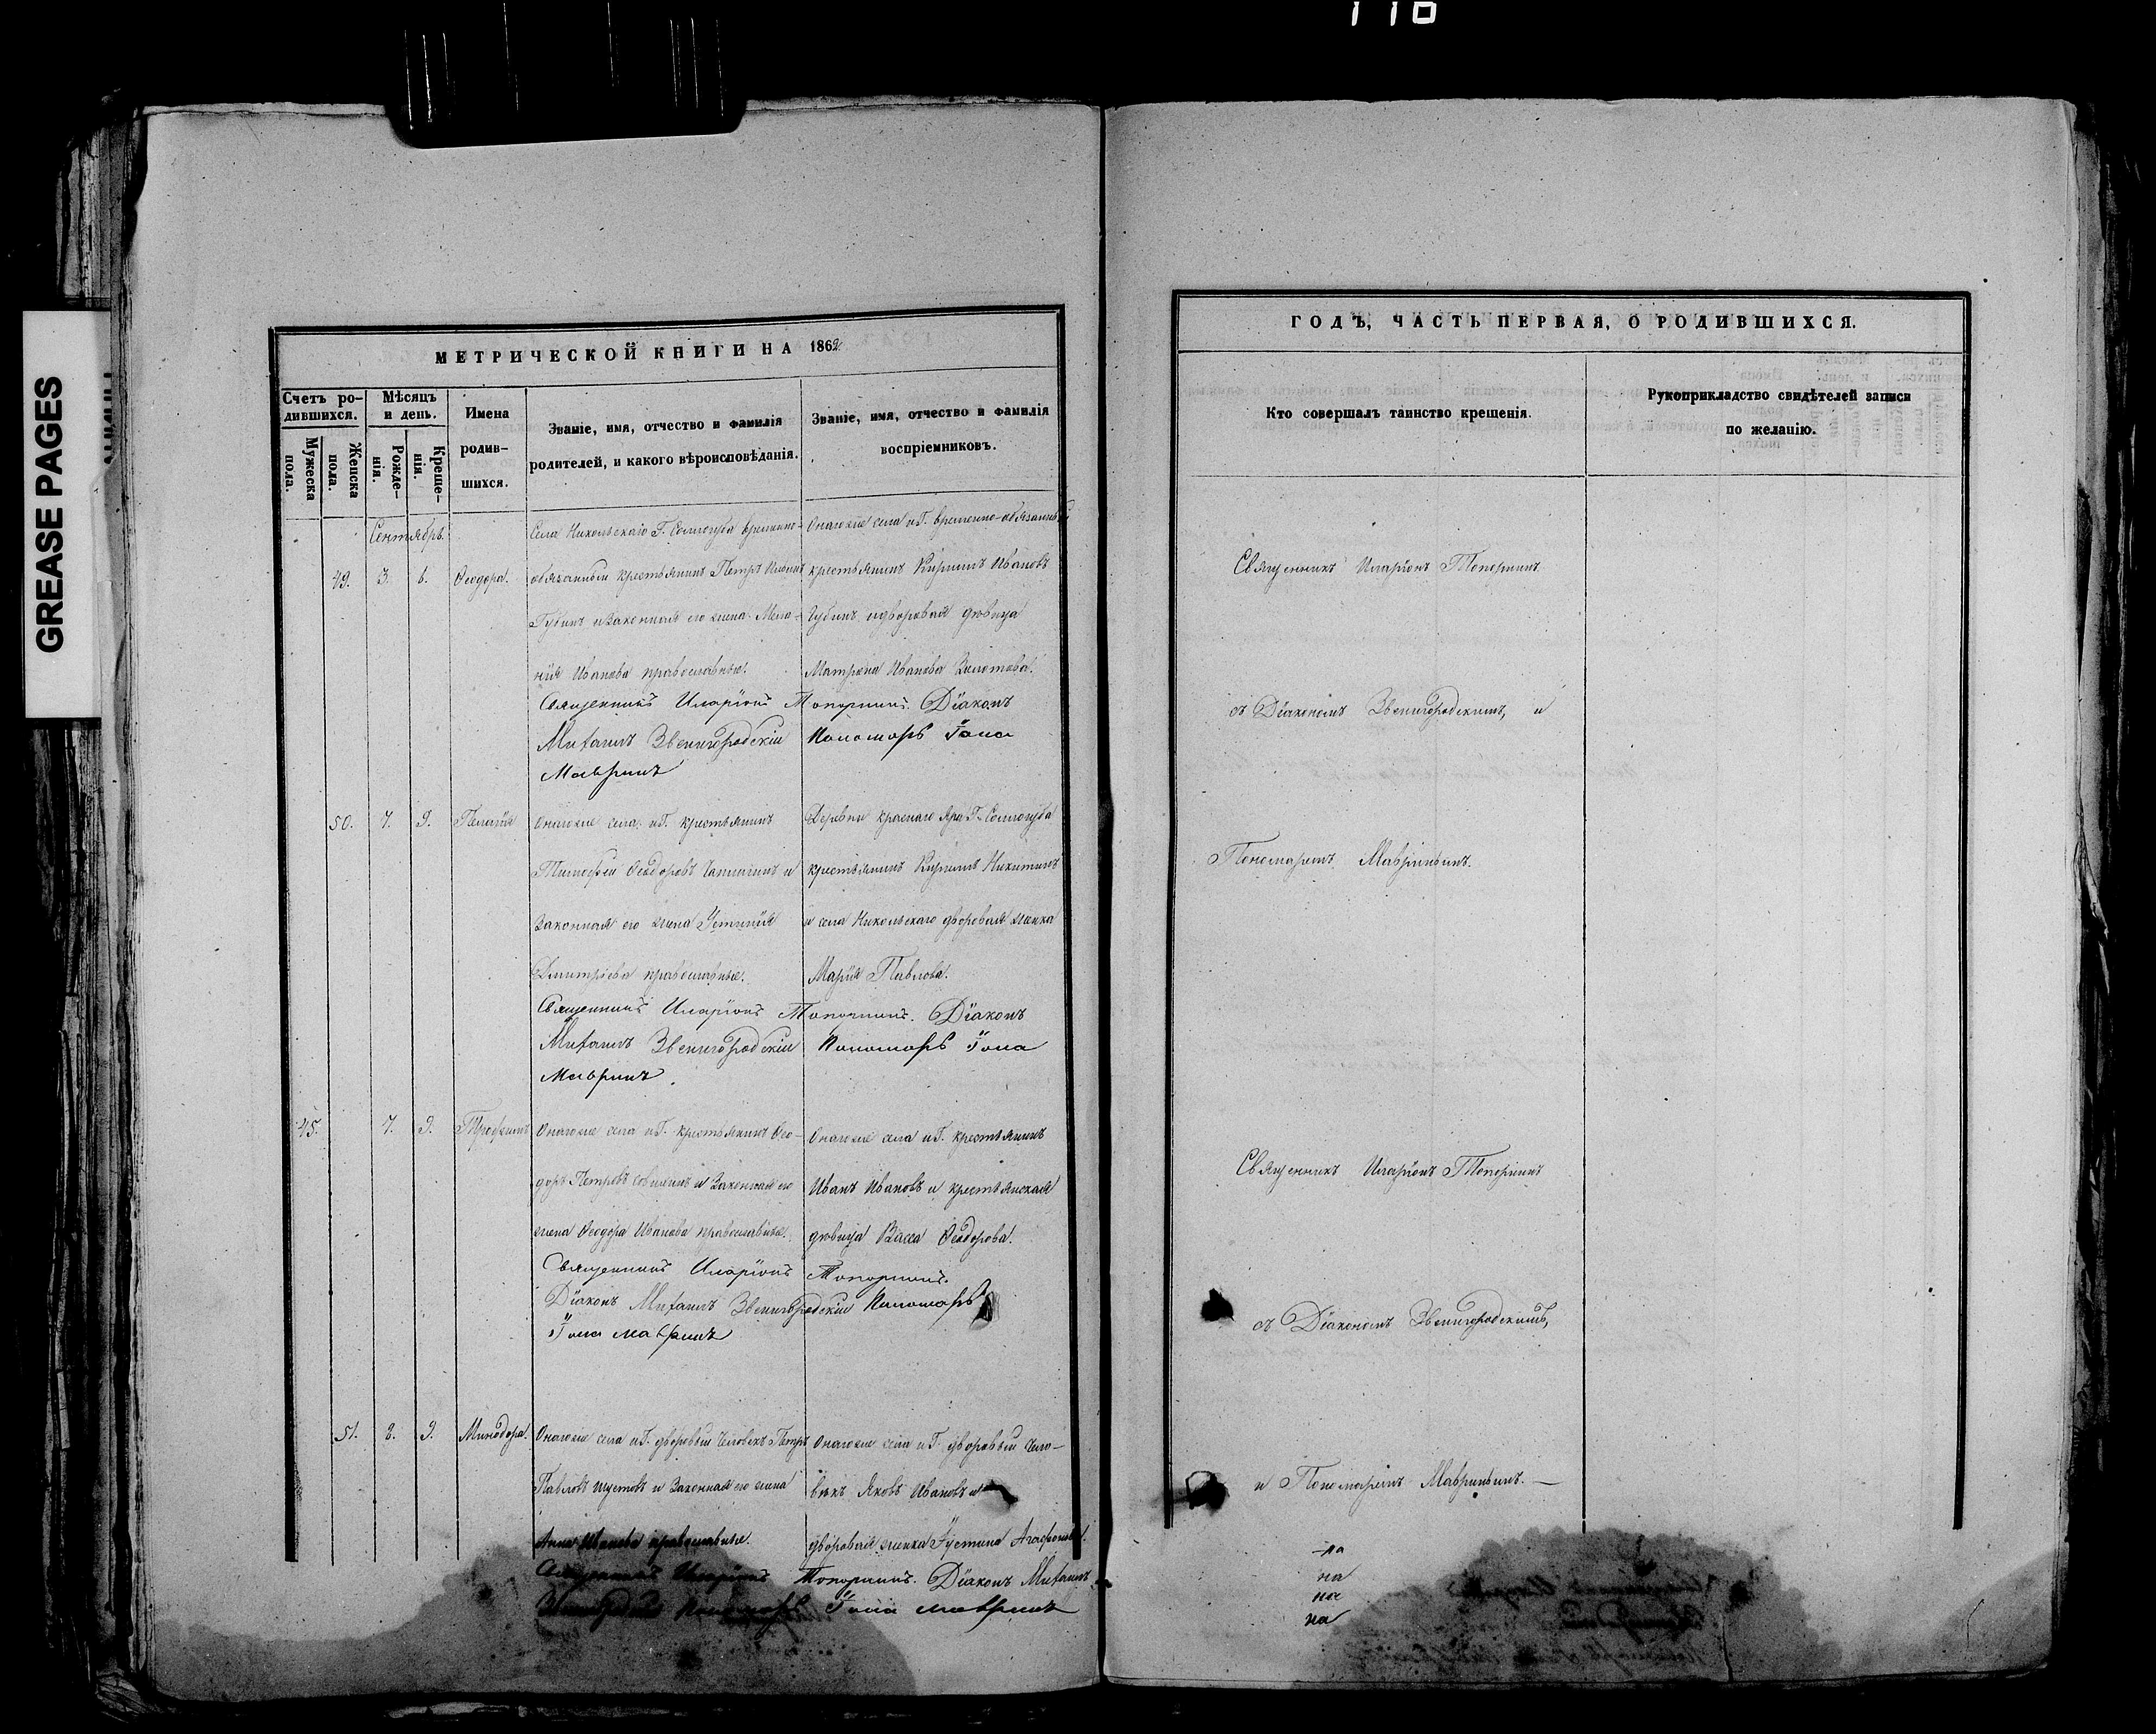 116
GREASE PAGES
МЕТРИЧЕСКОЙ КНИГИ НА 1862
Счетъ родившихся.
Мужеска пола.
Женска пола.
Мѣсяцъ и день.
Рожденія.
Крещенія.
Имена родившихся.
Званіе, имя, отчество и фамилія
родителей, и какого вѣроисповѣданія.
Званіе, имя, отчество и фамилія
воспріемниковъ.
Сентябрь.
49. 3. 6. Ѳеодора.
Села Никольскаго Г. Сологуба временно-
обязанный крестьянинъ Петръ
Губинъ и законная его жена Мела-
нія Иванова православные.
Онагоже села и Г. временно-обязанный
крестьянинъ Кирилъ Ивановъ
Губинъ и дворовая дѣвица
Матрона Иванова Золотова.
Священникъ Иларіонъ Топорнинъ. Діаконъ
Михаилъ Звенигородскій Пономарь Іона
Мавринъ
50. 7. 9. Пелагія
Онагоже села и Г. крестьянинъ
Тимофей Ѳеодоровъ и
законная его жена Устинія
Дмитріева православные.
Деревни краснаго Яра Г. Сологуба
крестьянинъ Кирилъ Никитинъ
и села Никольскаго дворовая женка
Марія Павлова.
Священникъ Иларіонъ Топорнинъ. Діаконъ
Михаилъ Звенигородскій Пономарь Іона
Мавринъ.
45. 7. 9. Трофимъ
Онагоже села и Г. крестьянинъ Ѳео-
доръ Петровъ и законная его
жена Ѳеодора Иванова православные.
Онагоже села и Г. крестьянинъ
Иванъ Ивановъ и крестьянская
дѣвица Васса Ѳеодорова.
Священникъ Иларіонъ Топорнинъ.
Діаконъ Михаилъ Звенигородскій Пономарь
Іона Мавринъ
51. 8. 9. Минодора.
Онагоже села и Г. дворовый человѣкъ Петръ
Павловъ Шустовъ и законная его жена
Анна Иванова православные.
Онагоже села и Г. дворовый чело-
вѣкъ Яковъ Ивановъ и
дворовая женка Іустина Агафонова.
Священникъ Иларіонъ Топорнинъ. Діаконъ Михаилъ
Звенигородскій Пономарь Іона Мавринъ
ГОДЪ, ЧАСТЬ ПЕРВАЯ, О РОДИВШИХСЯ.
Кто совершалъ таинство крещенія.
Рукоприкладство свидѣтелей записи
по желанію.
Священникъ Иларіонъ Топорнинъ
съ Діакономъ Звенигородскимъ, и
Пономаремъ Мавринымъ.
Священникъ Иларіонъ Топорнинъ
съ Діакономъ Звенигородскимъ,
и Пономаремъ Мавринымъ.
на
на
на
на